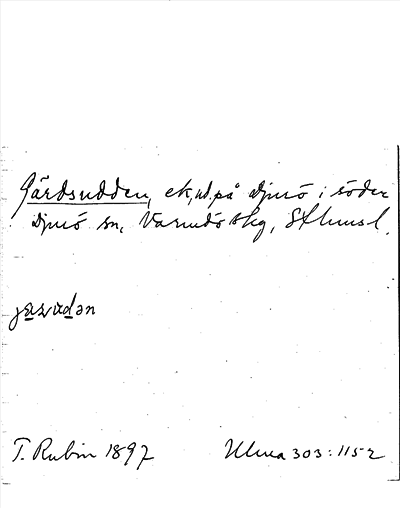 Gärdsudden, ek, ud. på Djurö i söder
Djurö sn, Värmdö skg, Sthmsl.
T. Rubin 1897 Ulma 303:1152